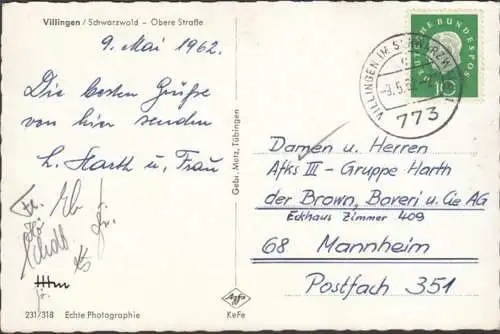 Villingen / Schwarzwald – Obere Straße
9. Mai 1962.
Die besten Grüße
von hier senden
H. Harth u. Frau
231/318 Echte Photographie
Gebr. Metz, Tübingen
Agfa
KeFe
DEUTSCHE BUNDESPOST
10
VILLINGEN IM SCHWARZWALD
-9.5.62
773
Damen u. Herren
Afks III - Gruppe Harth
der Brown, Boveri u. Cie AG
Eckhaus Zimmer 409
68 Mannheim
Postfach 351